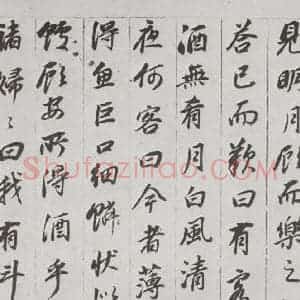 見明月顧而樂之
答已而歎曰有客
酒無肴月白風清
夜何客曰今者薄
得魚巨口細鱗狀似
鱸顧安所得酒乎
諸婦〻曰我有斗
Shufaziliao.com